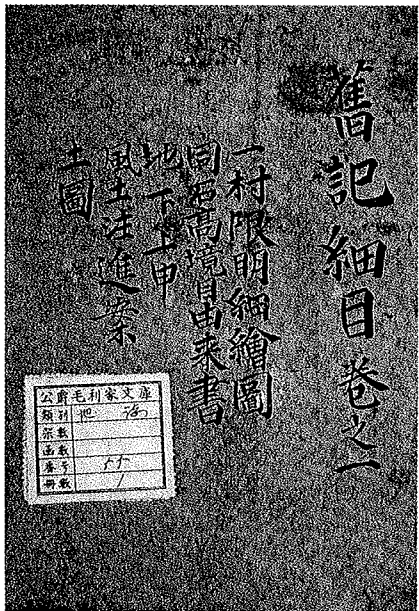 舊記細目巻之一
一村限明細繪圖
同石高境目由来書
地下上申
風土注進案
土圖
公爵毛利家文庫
類別 地誌
宗数
函数
番号
冊数 1